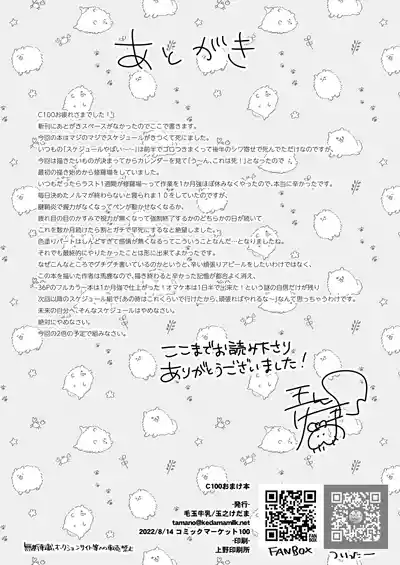 あとがき
C100お疲れさまでした！
新刊にあとがきスペースがなかったのでここで書きます。
今回の本はマジのマジでスケジュールがきつくて死にました。
いつもの「スケジュールやばい……」は前半でゴロつきまくって後半のシワ寄せで死んでただけなのですが、
今回は描きたいものが決まってからカレンダーを見て「うーん、これは死！」となったので
最初の描き始めから修羅場をしていました。
いつもだったらラスト1週間が修羅場〜って作業を1か月強ほぼ休みなくやったので、本当に辛かったです。
毎日決めたノルマが終わらないと喪られま10をしていたのですが、
腱鞘炎で握力がなくなってペンが動かせなくなるか、
疲れ目の目のかすみで視力が無くなって強制終了するかのどちらかの日が続いて
これを数か月続けたら割とガチで早死にするなと絶望しました。
色塗りパートはしんどすぎて感情が無くなるってこういうことなんだ…となりましたね。
それでも最終的にやりたかったことは形に出来てよかったです。
なぜこんなところでグチグチ書いているのかというと、辛い頑張りアピールをしたいわけではなく、
この本を描いた作者は馬鹿なので、描き終わると辛かった記憶が都合よく消え、
36Pのフルカラー本は1か月強で仕上がった！オマケ本は1日半で出来た！という謎の自信だけが残り
次回以降のスケジュール組で「あの時はこれくらいで行けたから、頑張ればやれるな〜」なんて思っちゃうわけです。
未来の自分へ、そんなスケジュールはやめなさい。
絶対にやめなさい。
今回の2倍の予定で組みなさい。
ここまでお読み下さり
ありがとうございました！
C100おまけ本
-発行-
毛玉牛乳/玉之けだま
tamano@kedamamilk.net
2022/8/14 コミックマーケット100
-印刷-
上野印刷所
FANBOX
ついったー
無断転載、オークションサイト等への転売禁止